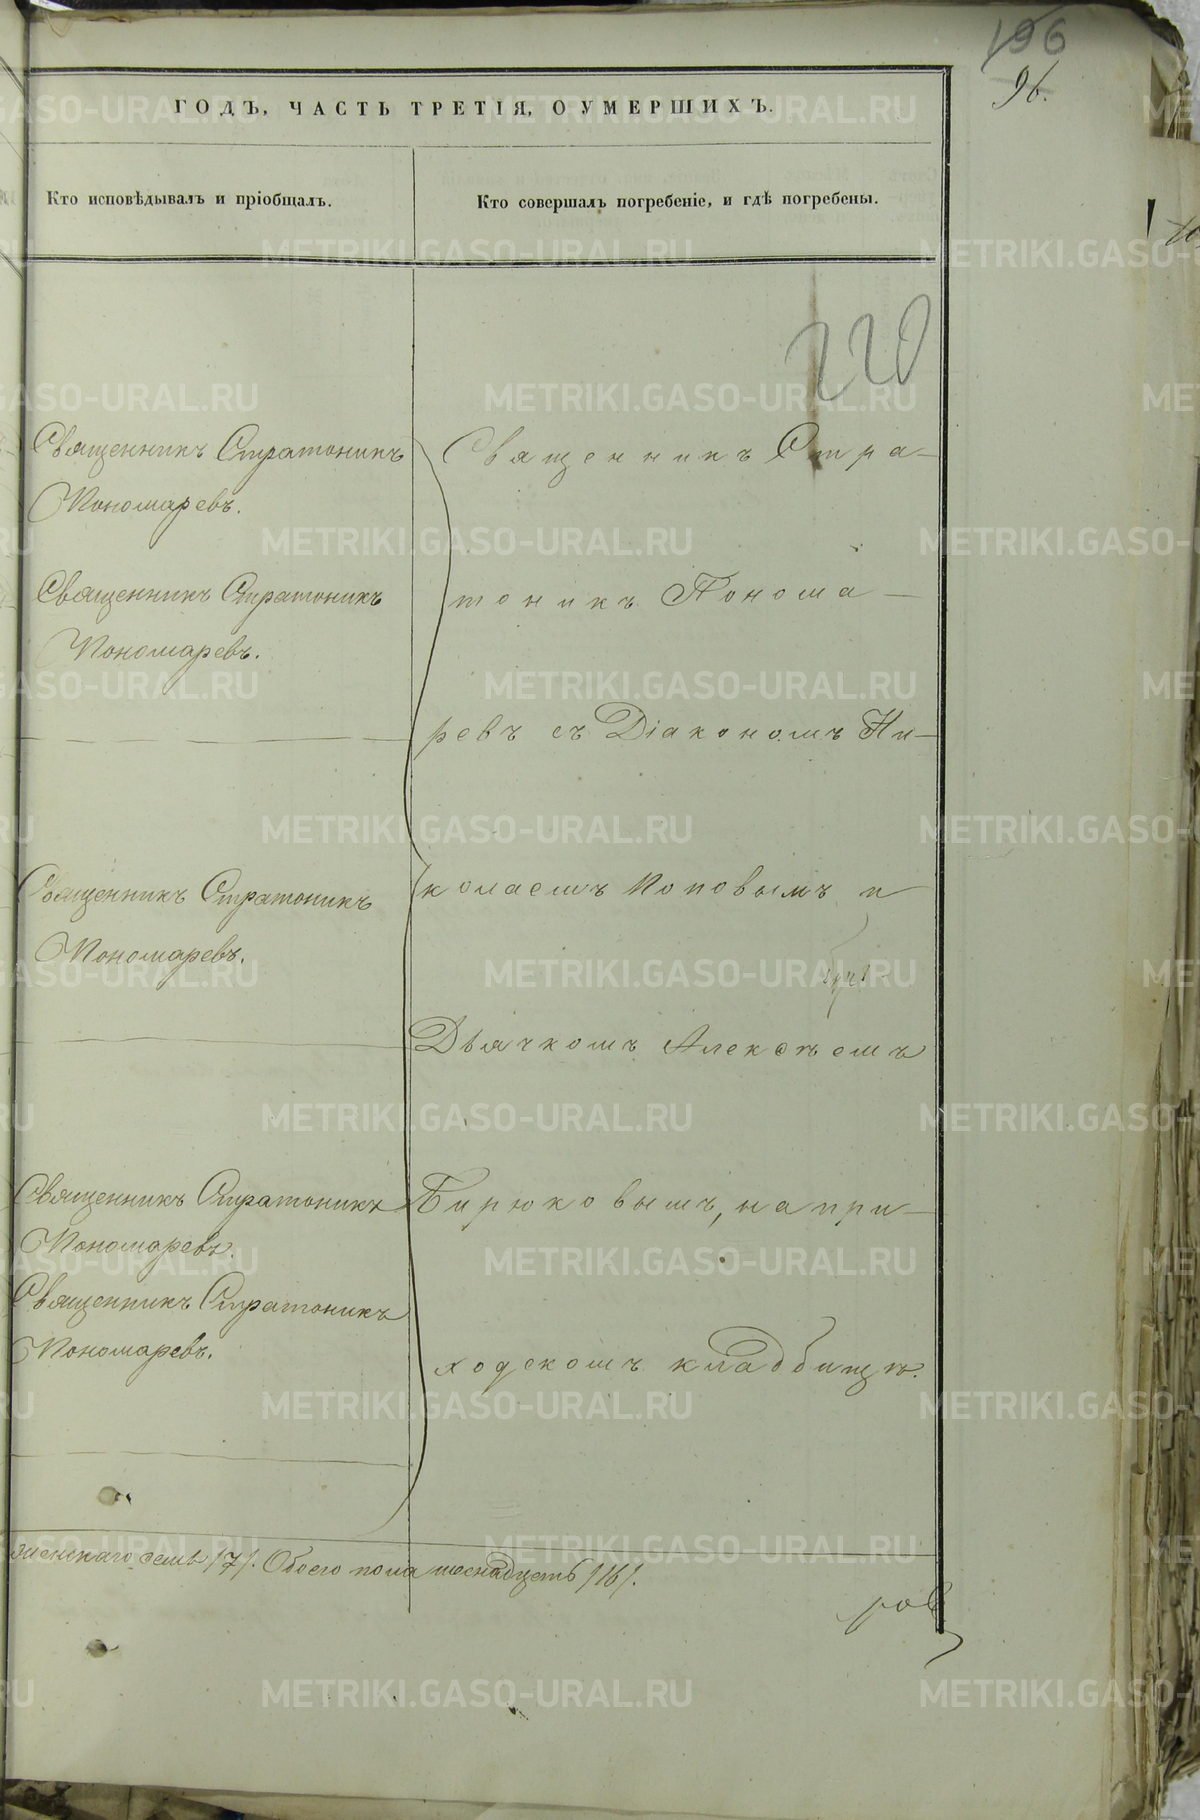 196
96.
ГОДЪ, ЧАСТЬ ТРЕТІЯ, О УМЕРШИХЪ.
Кто исповѣдывалъ и пріобщалъ.
Кто совершалъ погребеніе, и гдѣ погребены.
220
Священникъ Стратоникъ
Пономаревъ.
Священникъ Стратоникъ
Пономаревъ.
Священникъ Стратоникъ
Пономаревъ.
Священникъ Стратоникъ
Пономаревъ.
Священникъ Стратоникъ
Пономаревъ.
Священникъ Стра-
тоникъ Понома-
ревъ съ Діакономъ Ни-
колаемъ Поповымъ и
Дьячкомъ Алексѣемъ
Бирюковымъ, на при-
ходскомъ кладбищѣ.
женскаго семь /7/. Обоего пола шеснадцать /16/.
ровъ
METRIKI.GASO-URAL.RU